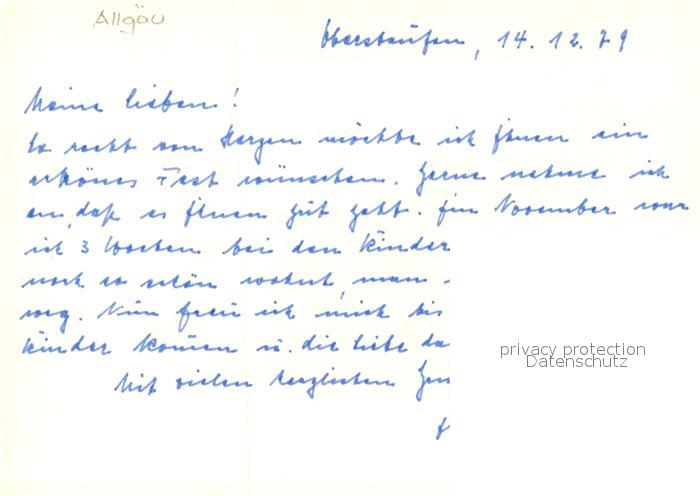 Allgäu
Oberstaufen, 14. 12. 79
Meine lieben!
So recht von Herzen möchte ich Ihnen ein
schönes Fest wünschen. Gerne nehme ich
an, daß es Ihnen gut geht. Im November war
ich 3 Wochen bei den Kinder
noch so schön wohnt, man
weg. Nun freu ich mich bis
Kinder kommen u. die liebe da
privacy protection
Datenschutz
Mit vielen herzlichen